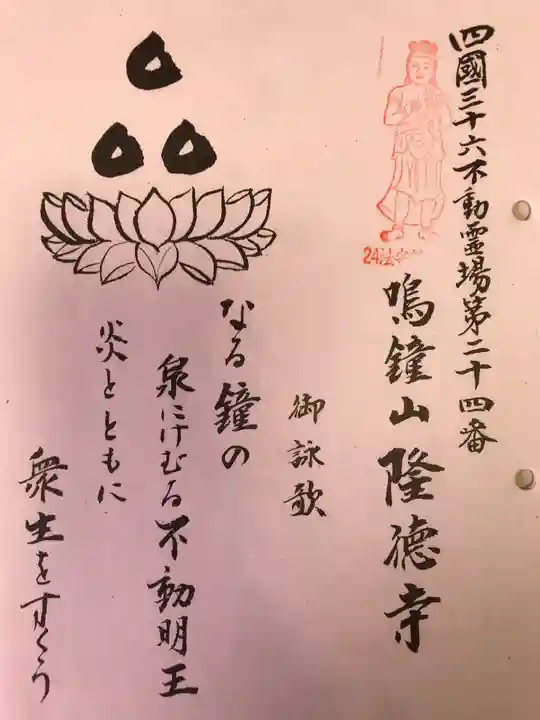 四國三十六不動霊場第二十四番
24法
鳴鐘山 隆徳寺
御詠歌
なる鐘の
泉にけむる不動明王
炎とともに
衆生をすくう